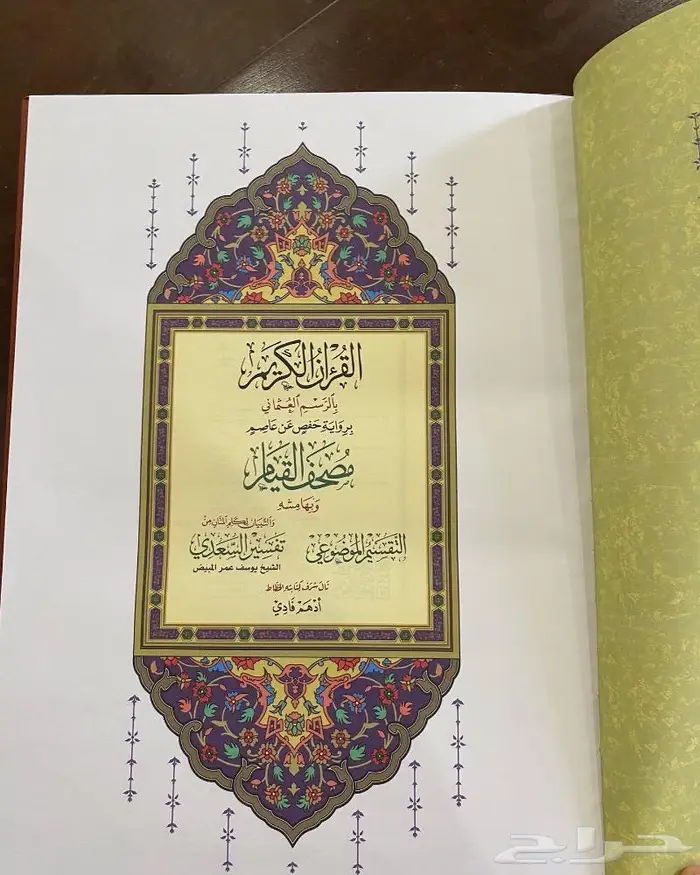 القرآن الكريم
بالرسم العثماني
برواية حفص عن عاصم
مصحف القيام
وبهامشه
والتبيان لكلام المنان من
التقسيم الموضوعي تفسير السعدي
الشيخ يوسف عمر المبيض
نال شرف كتابته الخطاط
أدهم فادي
حراج